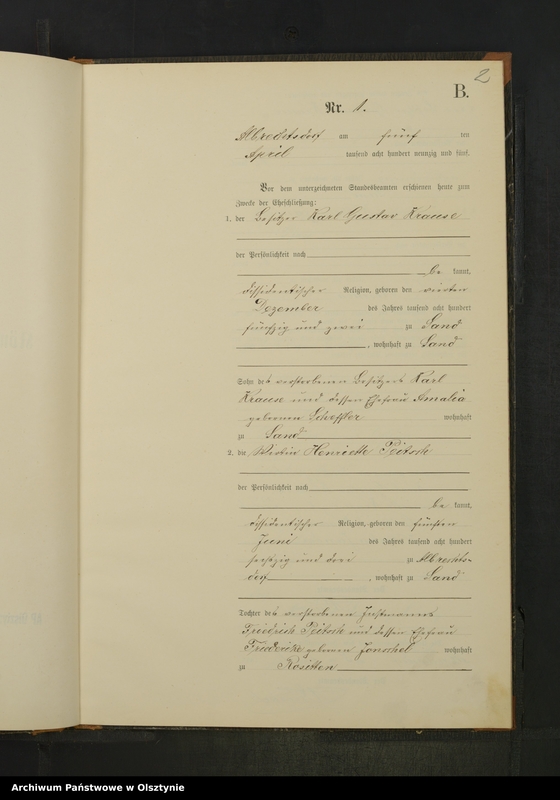 2
B.
Nr. 1.
Albrechtsdorf am fünf ten
April tausend acht hundert neunzig und fünf.
Vor dem unterzeichneten Standesbeamten erschienen heute zum
Zwecke der Eheschließung:
1. der Besitzer Karl Gustav Krause
der Persönlichkeit nach
be kannt,
dissidentischer Religion, geboren den vierten
Dezember des Jahres tausend acht hundert
fünfzig und zwei zu Sand
, wohnhaft zu Sand
Sohn des verstorbenen Besitzers Karl
Krause und dessen Ehefrau Amalia
geborenen Scheffler wohnhaft
zu Sand
2. die Wirtin Henriette
der Persönlichkeit nach
be kannt,
dissidentischer Religion, geboren den fünften
Juni des Jahres tausend acht hundert
sechzig und drei zu Albrechts-
dorf , wohnhaft zu Sand
Tochter des verstorbenen Instmanns
Friedrich und dessen Ehefrau
Friederike geborenen wohnhaft
zu Rositten
Archiwum Państwowe w Olsztynie